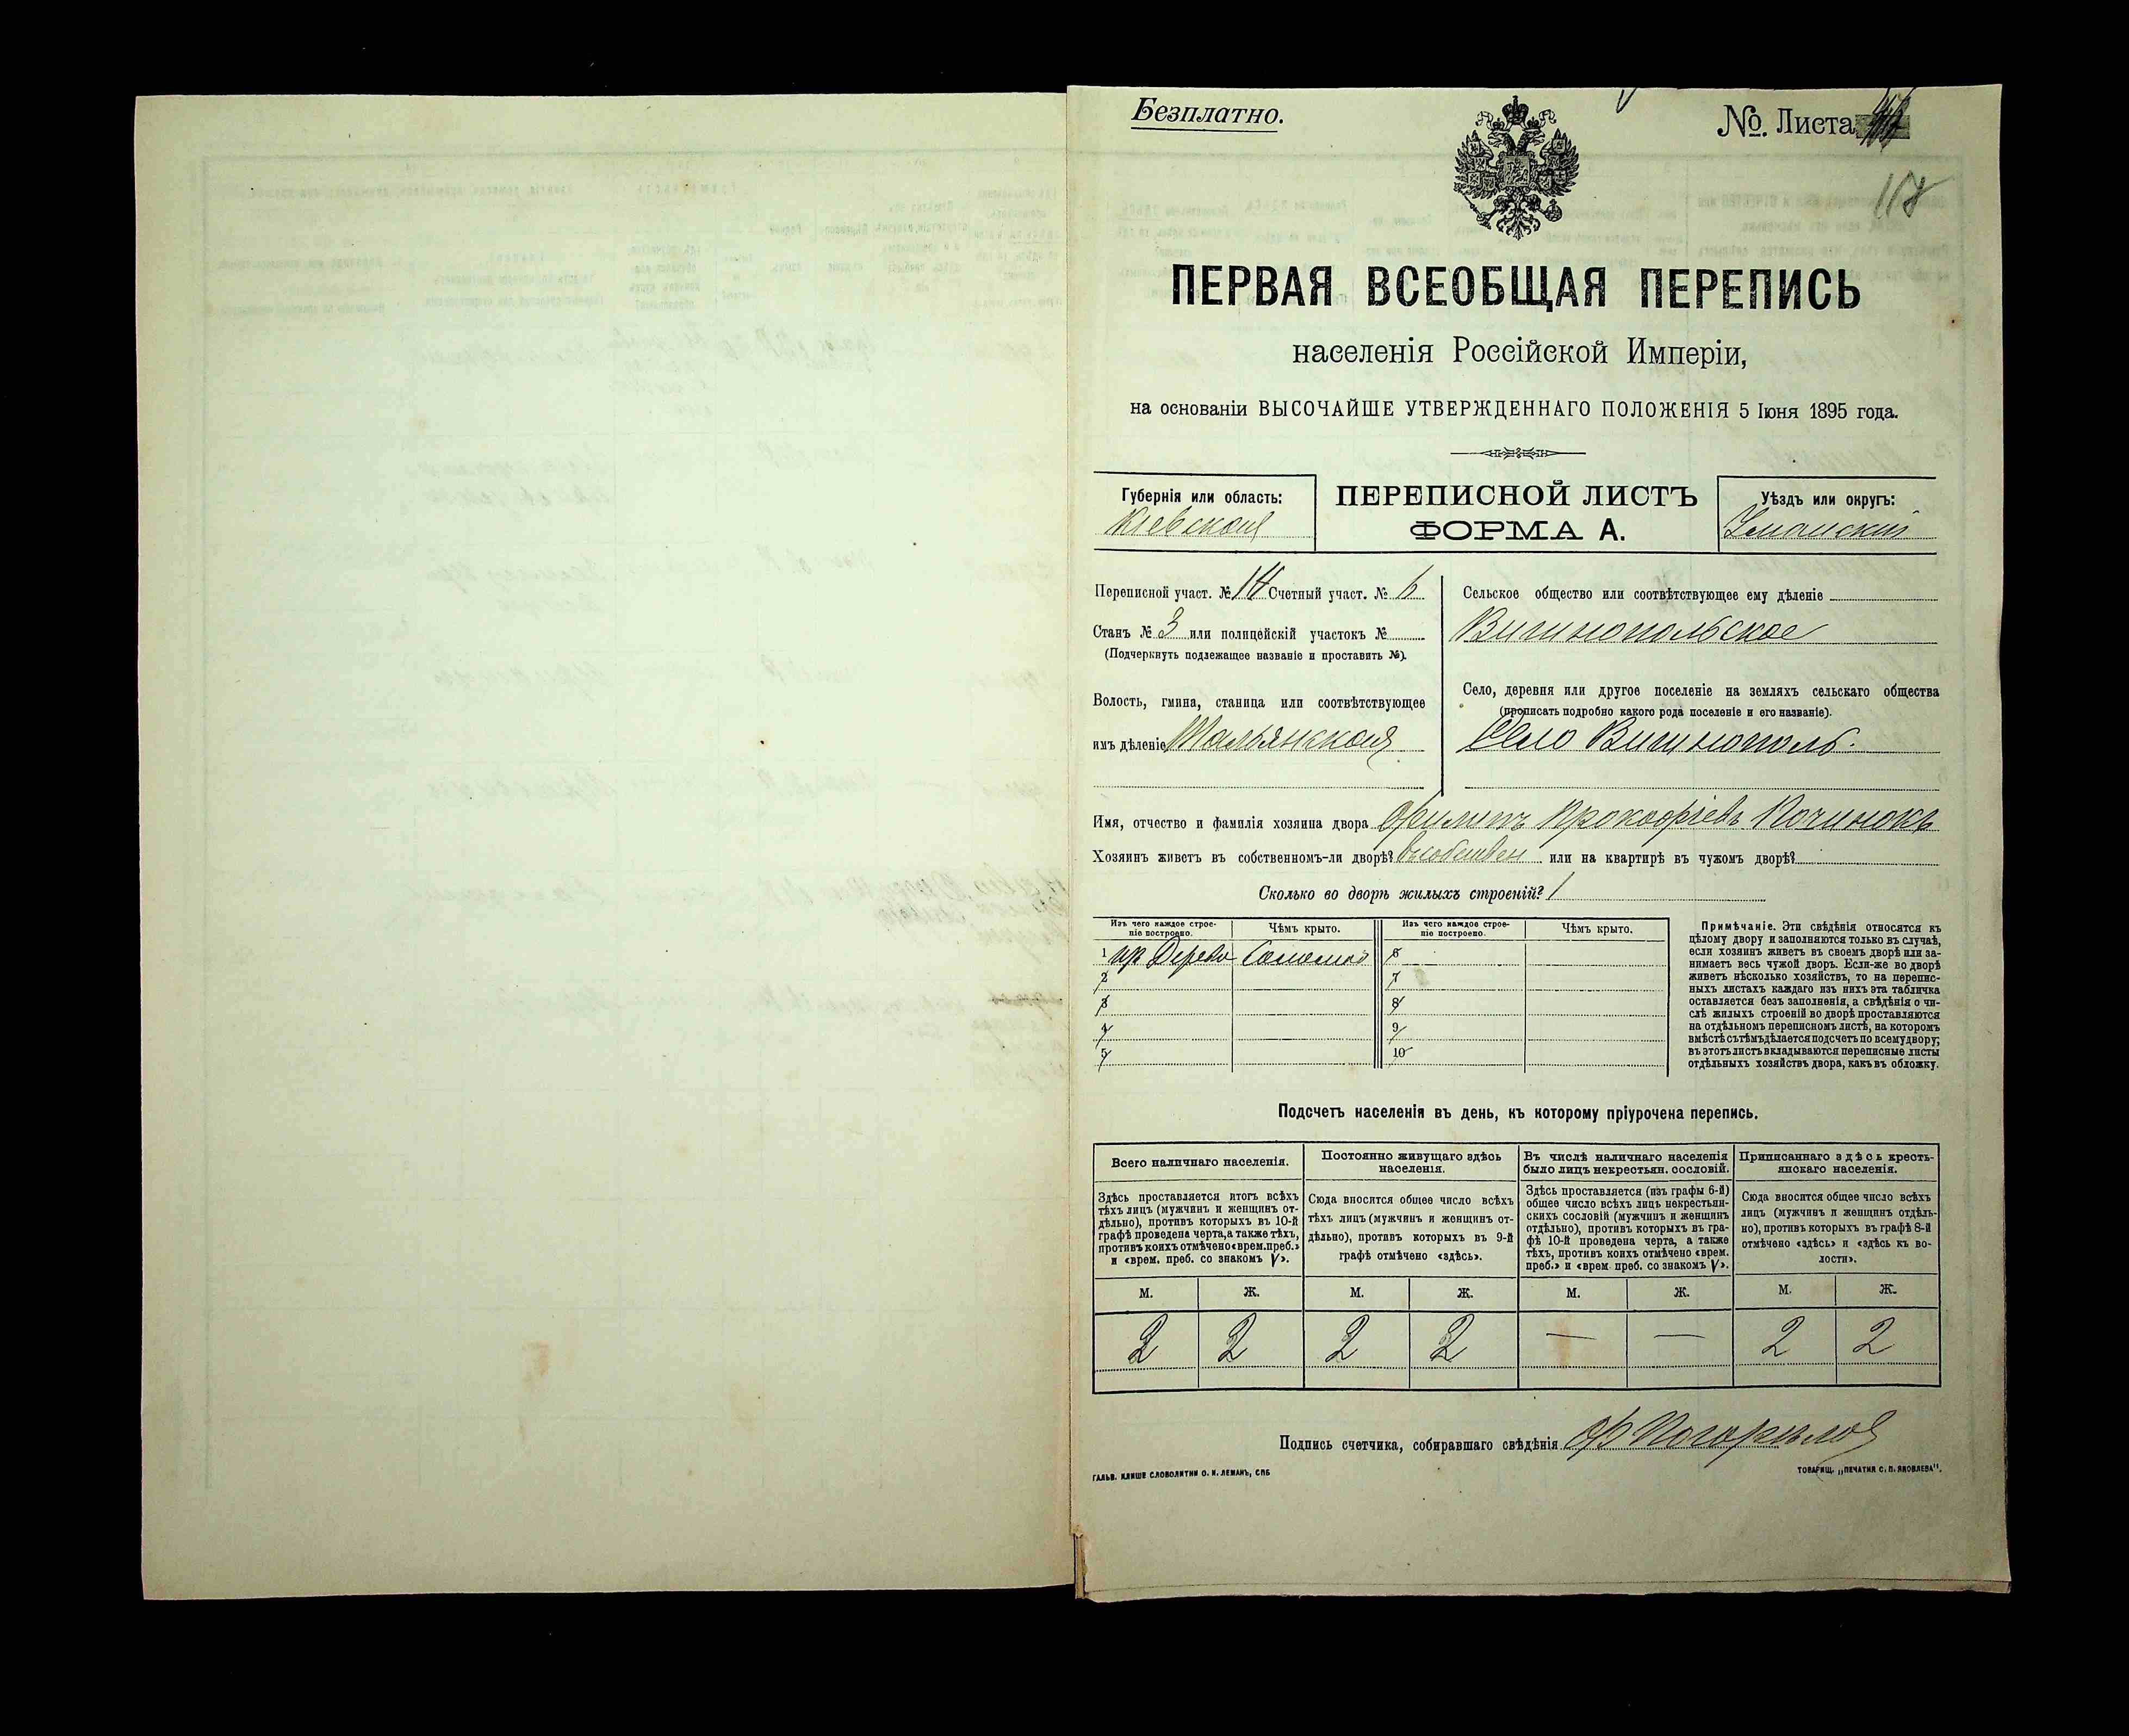 Безплатно.
№. Листа
117
ПЕРВАЯ ВСЕОБЩАЯ ПЕРЕПИСЬ
населенія Россійской Имперіи,
на основаніи ВЫСОЧАЙШЕ УТВЕРЖДЕННАГО ПОЛОЖЕНІЯ 5 Іюня 1895 года.
Губернія или область:
Кіевская
ПЕРЕПИСНОЙ ЛИСТЪ
ФОРМА А.
Уѣздъ или округъ:
Уманскій
Переписной участ. № 14 Счетный участ. № 6
Станъ № 3 или полицейскій участокъ №
(Подчеркнуть подлежащее названіе и проставить №).
Волость, гмина, станица или соотвѣтствующее
имъ дѣленіе Тальянская
Сельское общество или соотвѣтствующее ему дѣленіе
Вишнопольское
Село, деревня или другое поселеніе на земляхъ сельскаго общества
(прописать подробно какого рода поселеніе и его названіе).
Село Вишнополь.
Имя, отчество и фамилія хозяина двора Филипъ Прокофіевъ Починокъ
Хозяинъ живетъ въ собственномъ-ли дворѣ? въ собствен или на квартирѣ въ чужомъ дворѣ?
Сколько во дворѣ жилыхъ строеній? 1
Изъ чего каждое строе-
ніе построено.
Чѣмъ крыто.
Изъ чего каждое строе-
ніе построено.
Чѣмъ крыто.
1 Дерева Соломою 6
2 7
3 8
4 9
5 10
Примѣчаніе. Эти свѣдѣнія относятся къ
цѣлому двору и заполняются только въ случаѣ,
если хозяинъ живетъ въ своемъ дворѣ или за-
нимаетъ весь чужой дворъ. Если-же во дворѣ
живетъ нѣсколько хозяйствъ, то на перепис-
ныхъ листахъ каждаго изъ нихъ эта табличка
оставляется безъ заполненія, а свѣдѣнія о чи-
слѣ жилыхъ строеній во дворѣ проставляются
на отдѣльномъ переписномъ листѣ, на которомъ
вмѣстѣ съ тѣмъ дѣлается подсчетъ по всему двору;
въ этотъ листъ вкладываются переписные листы
отдѣльныхъ хозяйствъ двора, какъ въ обложку.
Подсчетъ населенія въ день, къ которому пріурочена перепись.
Всего наличнаго населенія.
Здѣсь проставляется итогъ всѣхъ
тѣхъ лицъ (мужчинъ и женщинъ от-
дѣльно), противъ которыхъ въ 10-й
графѣ проведена черта, а также тѣхъ,
противъ коихъ отмѣчено «врем. преб.»
и «врем. преб. со знакомъ V».
Постоянно живущаго здѣсь
населенія.
Сюда вносится общее число всѣхъ
тѣхъ лицъ (мужчинъ и женщинъ от-
дѣльно), противъ которыхъ въ 9-й
графѣ отмѣчено «здѣсь».
Въ числѣ наличнаго населенія
было лицъ некрестьян. сословій.
Здѣсь проставляется (изъ графы 6-й)
общее число всѣхъ лицъ некрестьян-
скихъ сословій (мужчинъ и женщинъ
отдѣльно), противъ которыхъ въ гра-
фѣ 10-й проведена черта, а также
тѣхъ, противъ коихъ отмѣчено «врем.
преб.» и «врем преб. со знакомъ V».
Приписаннаго здѣсь кресть-
янскаго населенія.
Сюда вносится общее число всѣхъ
лицъ (мужчинъ и женщинъ отдѣль-
но), противъ которыхъ въ графѣ 8-й
отмѣчено «здѣсь» и «здѣсь къ во-
лости».
М. Ж. М. Ж. М. Ж. М. Ж.
2 2 2 2 — — 2 2
Подпись счетчика, собиравшаго свѣдѣнія
ГАЛЬВ. КЛИШЕ СЛОВОЛИТНИ О. И. ЛЕМАНЪ, СПБ
ТОВАРИЩ. „ПЕЧАТНЯ С. П. ЯКОВЛЕВА".